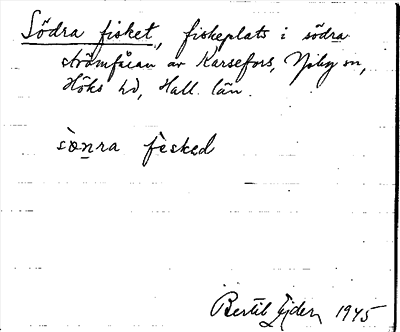 Södra fisket, fiskeplats i södra
strömfåran av Karsefors, Ysby sn,
Höks hd, Hall. län.
sònra fèsked
Bertil Ejder 1945